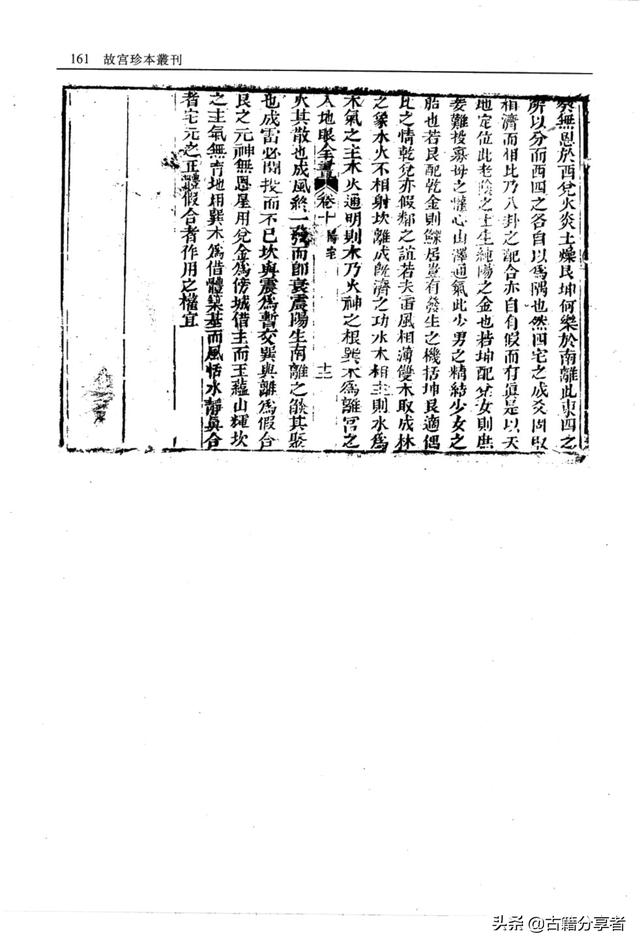 161 故宮珍本叢刊
癸無恩於西兌火炎土燥艮坤何樂於南離此東四之
所以分而西四之各自以爲隅也然四宅之成爻固取
相濟而相比乃八卦之配合亦自有假而有眞是以天
地定位此老陰之土生純陽之金也若坤配兌女則庶
妾難投寡母之懽心山澤通氣此少男之精結少女之
胎也若艮配乾金則鰥居豈有發生之機括坤艮適偶
比之情乾兌亦假鄰之誼若夫雷風相薄雙木取成林
之象水火不相射坎離成旣濟之功水木相生則水爲
木氣之主木火通明則木乃火神之根巽木爲離宮之
人地眼全書 卷十 陽宅 十二
火其散也成風終一發而卽衰震陽生南離之燄其聚
也成雷必閒投而不已坎與震爲暫交巽與離爲假合
艮之元神無恩屋用兌金爲傍城借主而玉蘊山輝坎
之主氣無育地用巽木爲借體築基而風恬水靜眞合
者宅元之正體假合者作用之權宜
头条 @古籍分享者